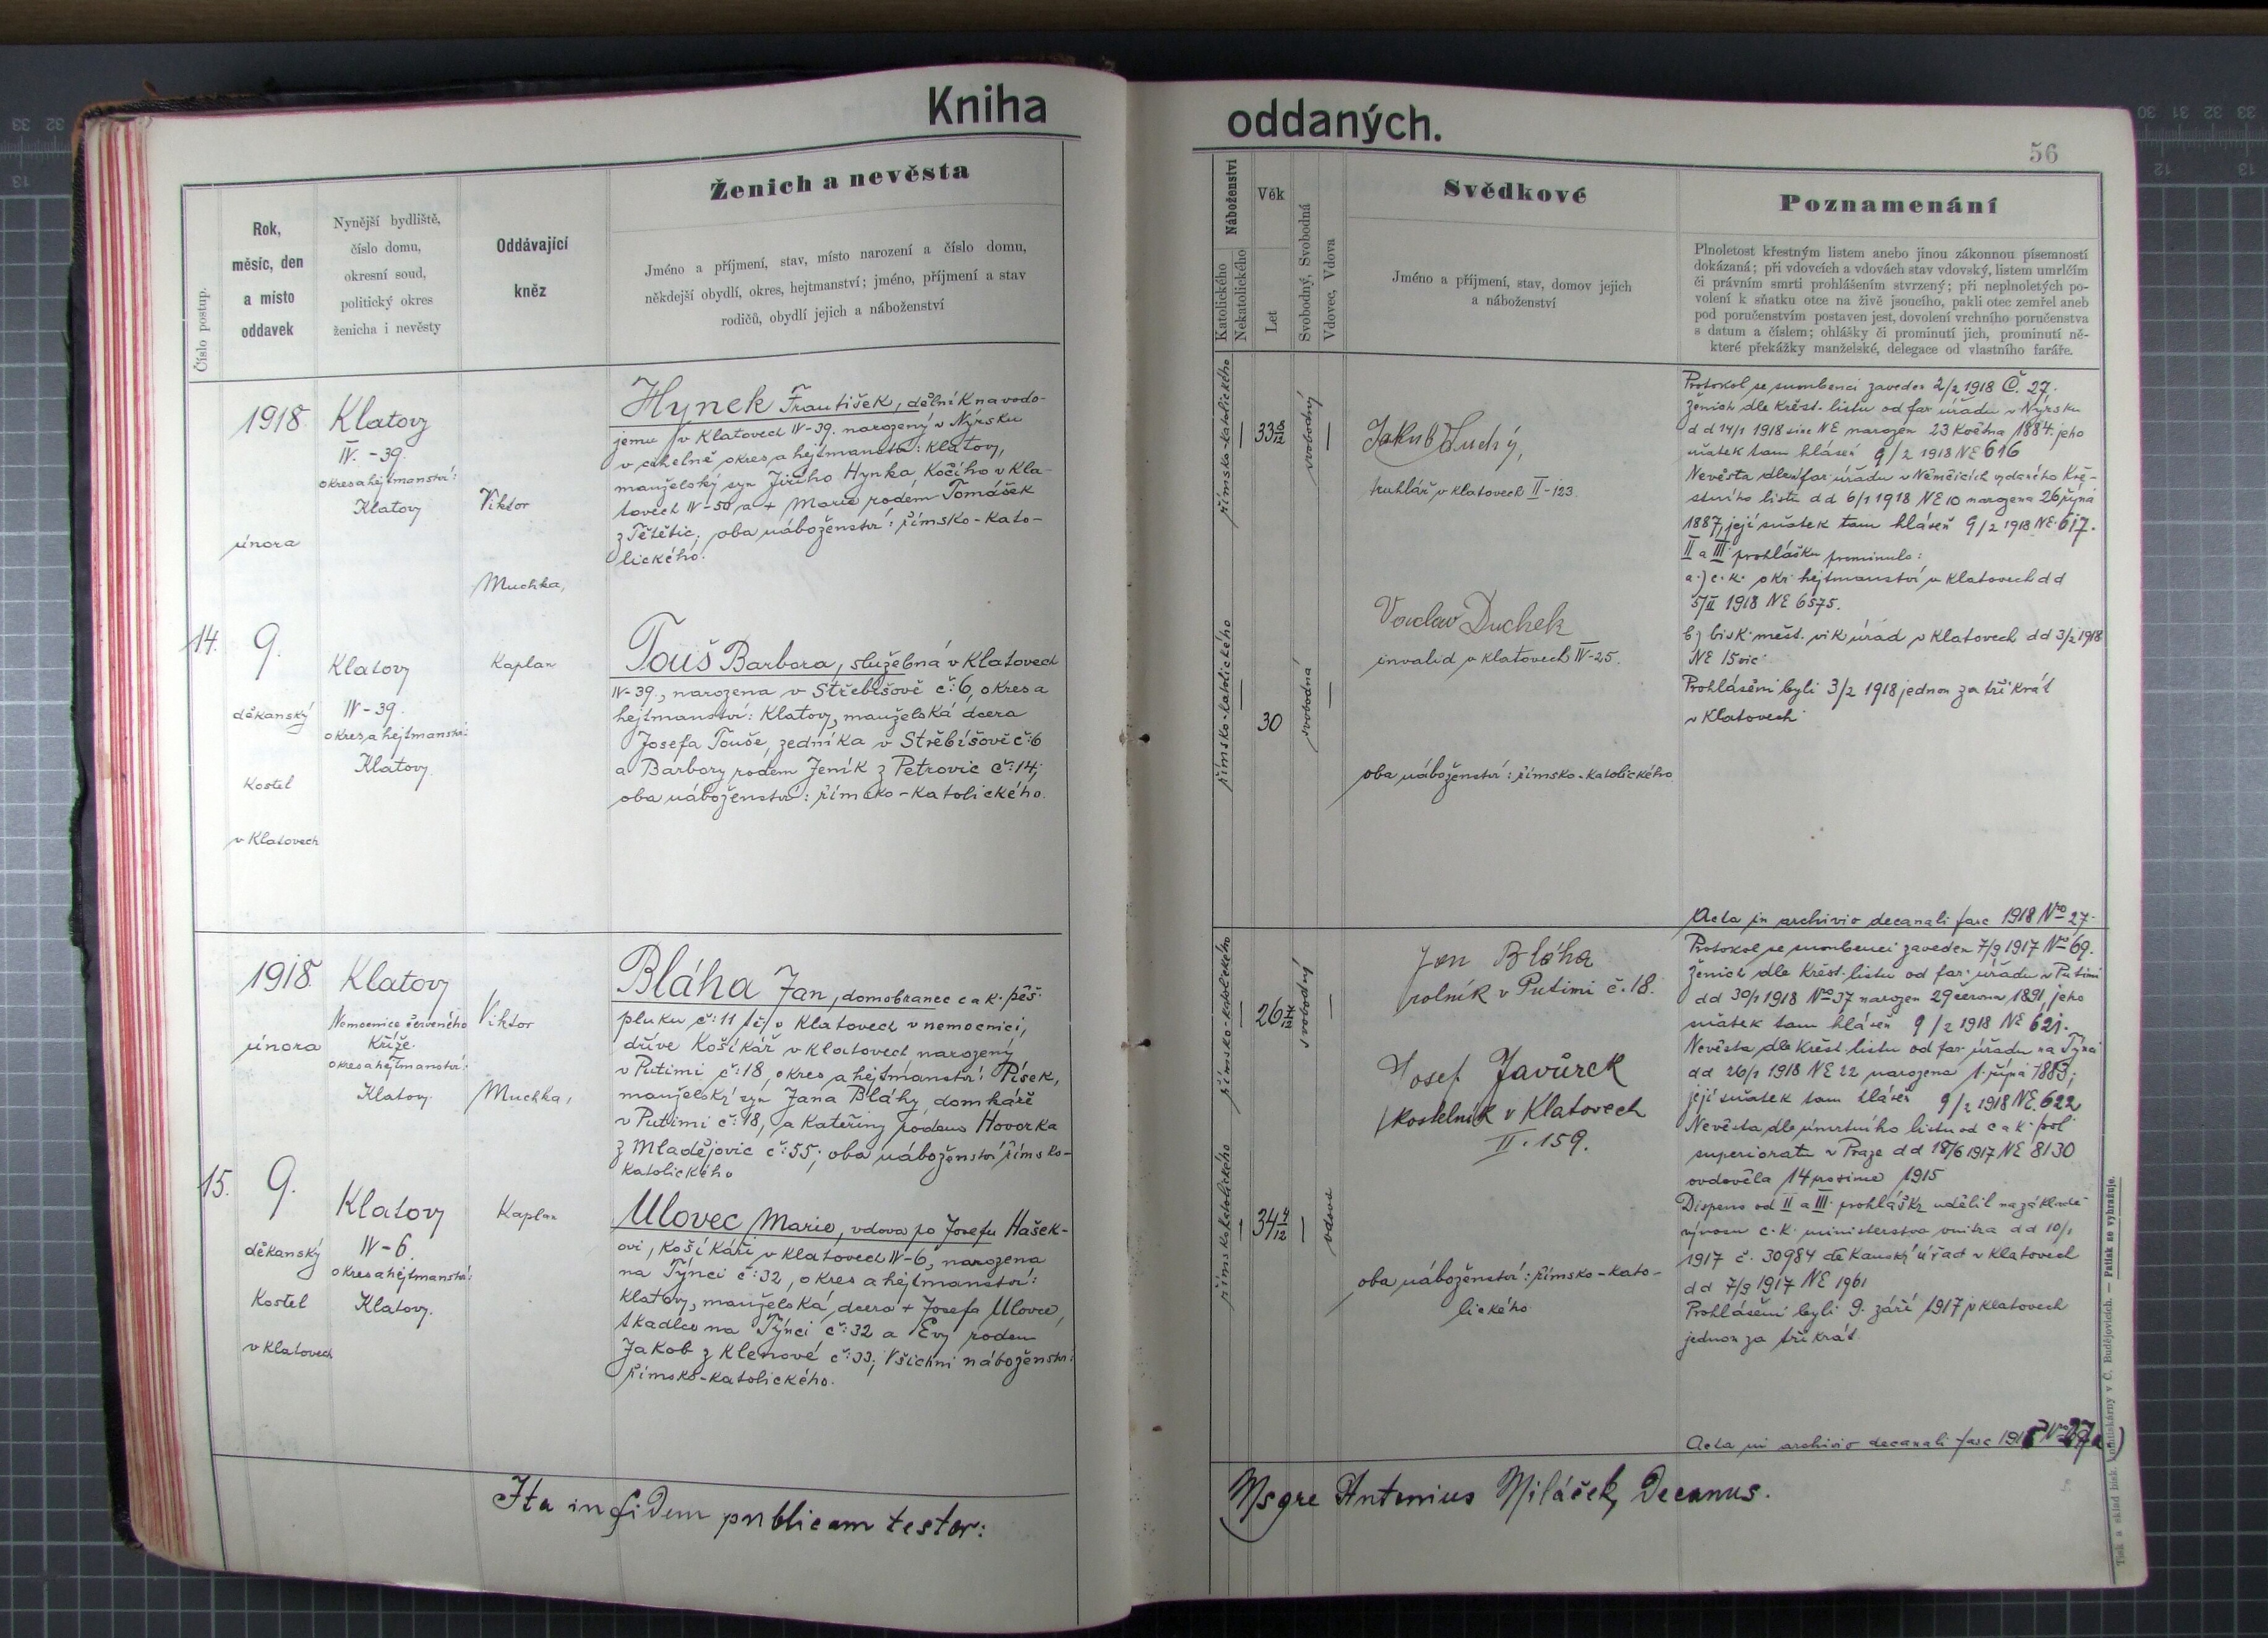 Kniha
oddaných.
56
Číslo postup.
Rok,
měsíc, den
a místo
oddavek
Nynější bydliště,
číslo domu,
okresní soud,
politický okres
ženicha i nevěsty
Oddávající
kněz
Ženich a nevěsta
Jméno a příjmení, stav, místo narození a číslo domu,
někdejší obydlí, okres, hejtmanství; jméno, příjmení a stav
rodičů, obydlí jejich a náboženství
Náboženství
Katolického
Nekatolického
Věk
Let
Svobodný, Svobodná
Vdovec, Vdova
Svědkové
Jméno a příjmení, stav, domov jejich
a náboženství
Poznamenání
Plnoletost křestným listem anebo jinou zákonnou písemností
dokázaná; při vdovcích a vdovách stav vdovský, listem umrlčím
či právním smrti prohlášením stvrzený; při neplnoletých po-
volení k sňatku otce na živě jsoucího, pakli otec zemřel aneb
pod poručenstvím postaven jest, dovolení vrchního poručenstva
s datum a číslem; ohlášky či prominutí jich, prominutí ně-
které překážky manželské, delegace od vlastního faráře.
14.
1918.
února
9.
děkanský
Kostel
v Klatovech
Klatovy
IV. -39.
okres a hejtmanství:
Klatovy
Klatovy
IV-39.
okres a hejtmanství:
Klatovy.
Viktor
Muchka,
Kaplan
Hynek František, dělník na vodo-
jemu v Klatovech IV-39. narozený v Nýrsku
v cihelně okres a hejtmanství: Klatovy,
manželský syn Jiřího Hynka, Kočího v Kla-
tovech IV-50 a + Marie rodem Tomášek
z Tětětic; oba náboženství: římsko-kato-
lického.
Touš Barbora, služebná v Klatovech
IV-39., narozena v Střebišově č:6, okres a
hejtmanství: Klatovy, manželská dcera
Josefa Touše, zedníka v Střebišově č:6
a Barbory rodem Jeník z Petrovic č:14;
oba náboženství: římsko-katolického.
římsko-katolického
33 8/12
svobodný
římsko-katolického
30
svobodná
Jakub Suchý,
truhlář v Klatovech II-123.
Vaclav Duchek
invalid v Klatovech IV-25.
oba náboženství: římsko-katolického
Protokol se snoubenci zaveden 2/2 1918 Č. 27.
Ženich dle křest. listu od far. úřadu v Nýrsku
dd 14/1 1918 sine NE narozen 23 Května 1884. jeho
sňatek tam hlášen 9/2 1918 NE 616
Nevěsta dle far úřadu v Němčicích vydaného Kře-
stního listu dd 6/1 1918 NE 10 narozena 26 října
1887, její sňatek tam hlášen 9/2 1918 NE. 617.
II a III prohlášku prominulo:
a.) c. k. okr. hejtmanství v Klatovech dd
5/II 1918 NE 6575.
b) bisk. měst. vik úřad v Klatovech dd 3/2 1918
NE 15 vic
Prohlášeni byli 3/2 1918 jednou za tři krát
v Klatovech
Acta in archivio decanali fasc 1918 Nro 27.
15.
1918.
února
9.
děkanský
Kostel
v Klatovech
Klatovy
Nemocnice červeného
Kříže.
okres a hejtmanství:
Klatovy.
Klatovy
IV-6.
okres a hejtmanství:
Klatovy.
Viktor
Muchka,
Kaplan
Bláha Jan, domobranec c a k. pěš.
pluku č:11 t.č. v Klatovech v nemocnici,
dříve Košíkář v Klatovech, narozený
v Putimi č:18, okres a hejtmanství: Písek,
manželský syn Jana Bláhy, domkáře
v Putimi č:18, a Kateřiny rodem Hovorka
z Mladějovic č:55; oba náboženství římsko-
katolického
Ulovec Marie, vdova po Josefu Hašek-
ovi, Košíkáři v Klatovech IV-6, narozena
na Týnci č:32, okres a hejtmanství:
Klatovy, manželská dcera + Josefa Ulovce,
tkadlce na Týnci č:32 a Evy rodem
Jakob z Klenové č:33; Všichni náboženství:
římsko-katolického.
římsko-katolického
26 7/12
svobodný
římskokatolického
34 4/12
vdova
Jan Bláha
rolník v Putimi č.18.
Josef Javůrek
kostelník v Klatovech
II. 159.
oba náboženství: římsko-kato-
lického
Protokol se snoubenci zaveden 7/9 1917 No 69.
Ženich dle křest. listu od far. úřadu v Putimi
dd 30/1 1918 No 37 narozen 29 června 1891, jeho
sňatek tam hlášen 9/2 1918 NE 621.
Nevěsta dle křest. listu od far. úřadu na Týnci
dd 26/1 1918 NE 22 narozena 1. října 1883;
její sňatek tam hlášen 9/2 1918 NE. 622
Nevěsta dle úmrtního listu od c a k. pol.
superioratu v Praze dd 18/6 1917 NE 8130
ovdověla 14 prosince 1915
Dispens od II a III prohlášky udělil na základě
výnosu c. k. ministerstva vnitra dd 10/1
1917 č. 30984 děkanský úřad v Klatovech
dd 7/9 1917 NE 1961
Prohlášeni byli 9. září 1917 v Klatovech
jednou za tři krát
Acta in archivio decanali fasc
Ita in fidem publicam testor:
Msgre Antonius Miláček, Decanus.